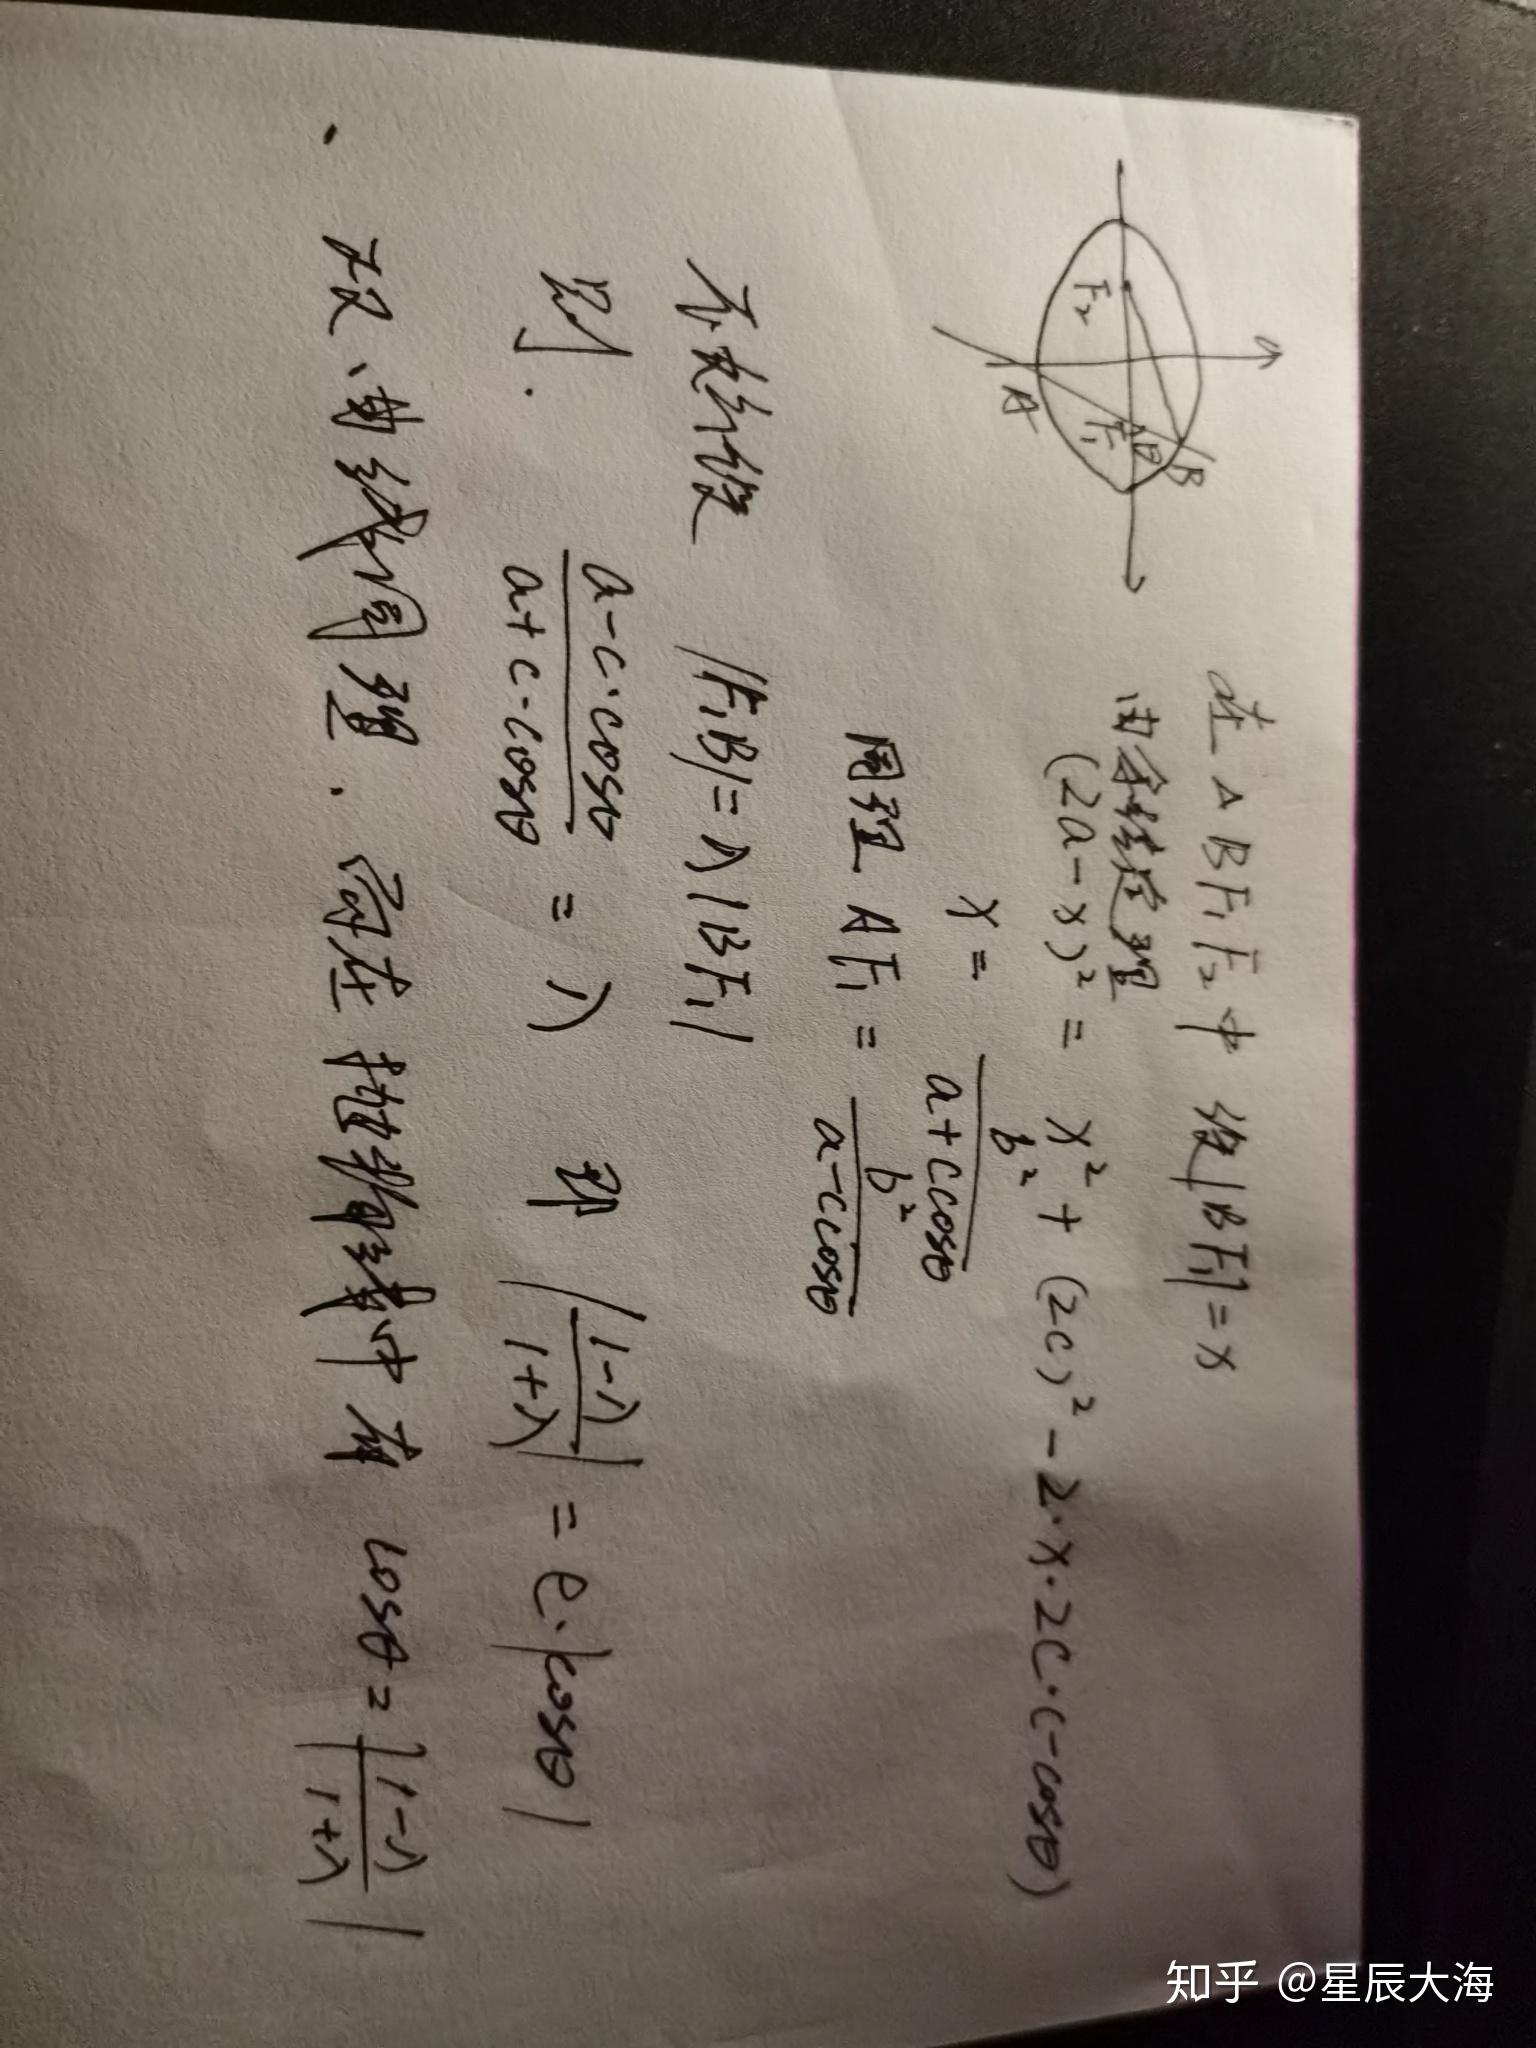 在△BF₁F₂中 设|BF₁|=x
由余弦定理
(2a-x)²= x²+(2c)²-2·x·2c·(-cosθ)
x= b²/(a+ccosθ)
同理 AF₁= b²/(a-ccosθ)
F₂ F₁ θ B A
不妨设 |F₁B|=λ|BF₁|
则. (a-c·cosθ)/(a+c·cosθ) = λ 即 |(1-λ)/(1+λ)| = e·|cosθ|
双曲线同理. 而在抛物线中有 cosθ=|(1-λ)/(1+λ)|
知乎 @星辰大海